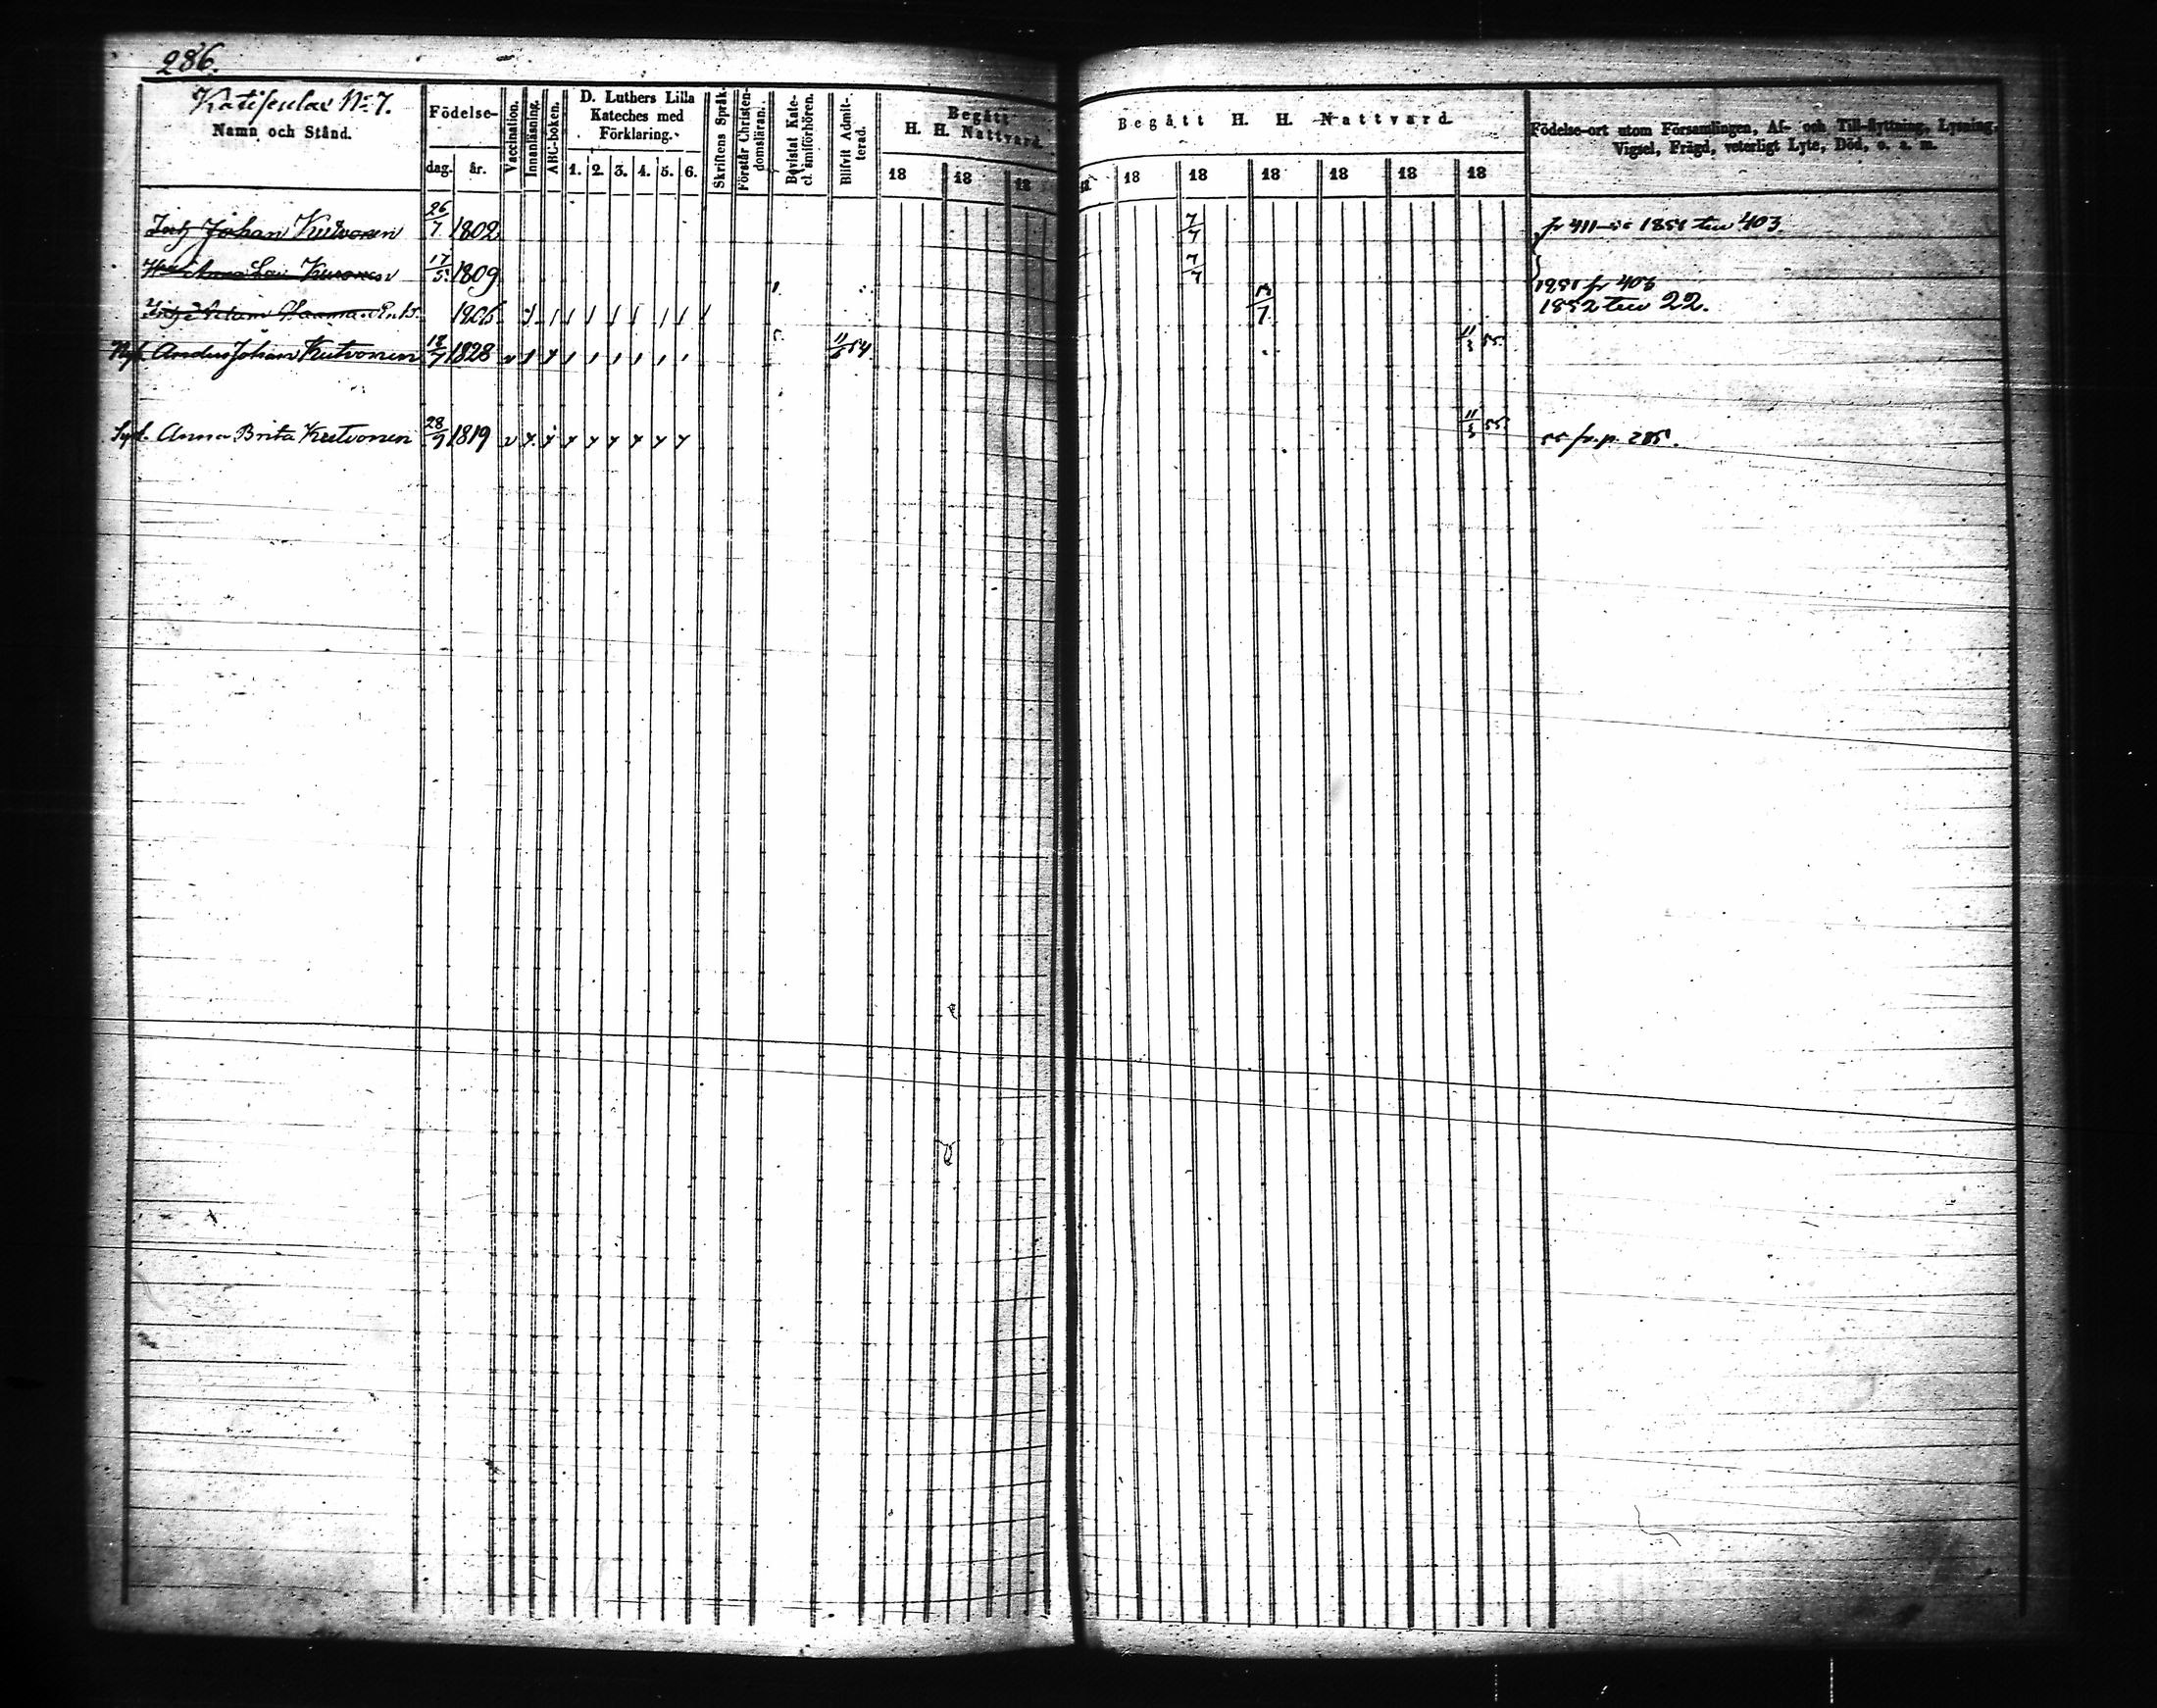 286.
No 7.
Namn och Stånd.
Födelse-
dag. år.
Vaccination.
Innanläsning.
ABC-boken.
D. Luthers Lilla
Kateches med
Förklaring.
1. 2. 3. 4. 5. 6.
Skriftens Språk.
Förstår Christen-
domsläran.
Bevistat Kate-
Blifvit Admit-
terad.
Begått
H. H. Nattvard.
18 18 18
Begått H. H. Nattvard
18 18 18 18 18 18
Födelse-ort utom Församlingen, Af- och Till-flyttning, Lysning,
Vigsel, Frägd, veterligt Lyte, Död, o. s. m.
Johan Kutvonen 26/7 1802 7/7 fr 411 1851 403
Anna 17/5 1809 7/7
1851 fr 403
1806 7 1852 22.
Anders Johan Kutvonen 18/7 1828 11/6 54 11/3 55
Anna Brita Kutvonen 28/9 1819 11/3 55 55 fr. p. 285.